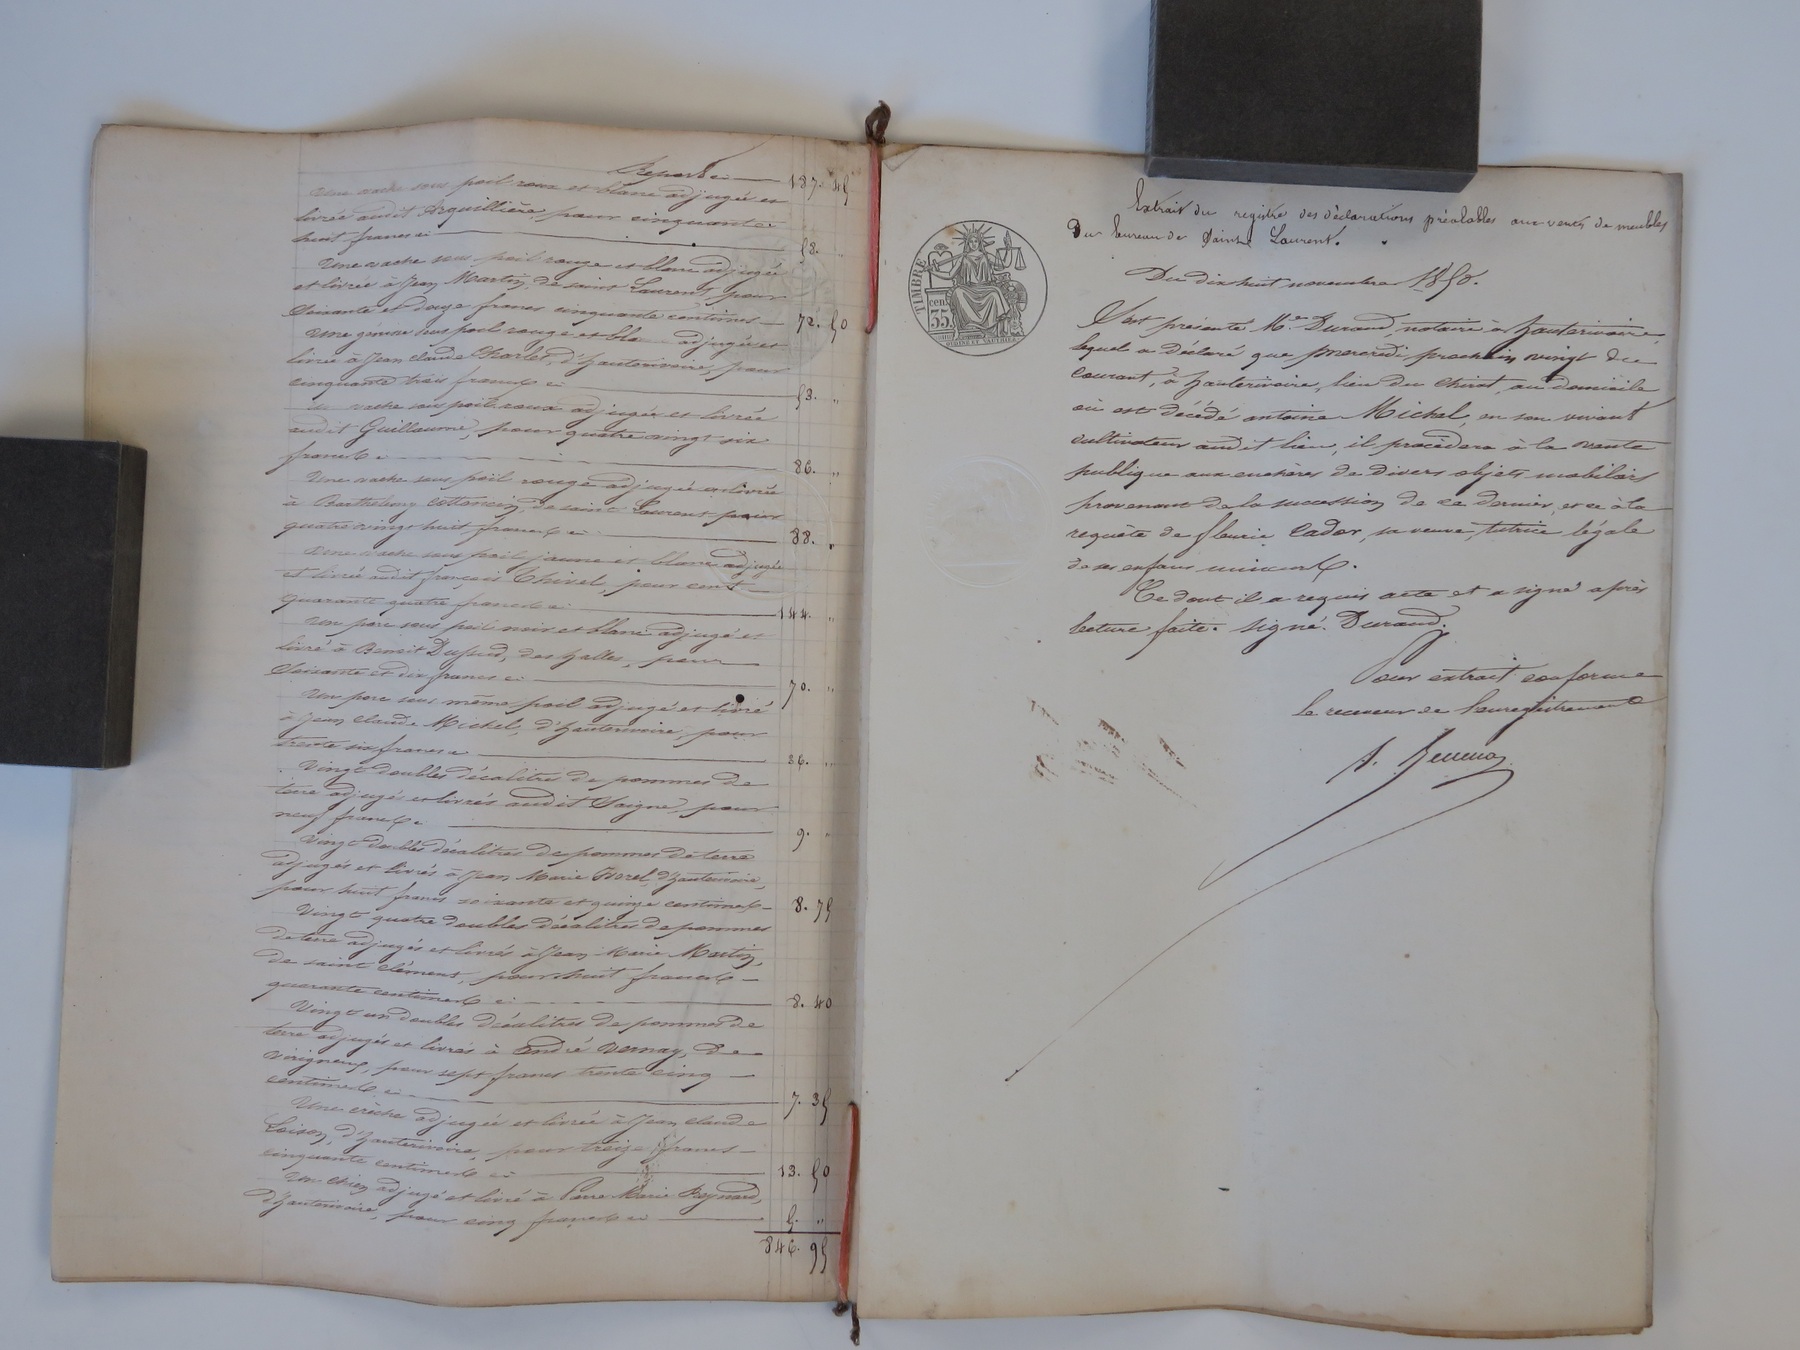 Report ci 187. 45
Une vache sous poil roux et blanc adjugée et
livrée audit Arquillière pour cinquante
huit francs ci 58. "
Une vache sous poil rouge et blanc adjugée
et livrée à Jean Martin, de saint Laurent, pour
soixante et douze francs cinquante centimes 72. 50
Une génisse sous poil rouge et bla adjugée et
livrée à Jean Claude Charles, d'hauterivoire, pour
cinquante trois francs ci 53. "
vache sous poil roux adjugée et livrée
audit Guillaume, pour quatre vingt six
francs ci 86. "
Une vache sous poil rouge adjugée et livrée
à Barthelemy Cottancin, de saint Laurent pour
quatre vingt huit francs ci 88. "
Une vache sous poil jaune et blanc adjugée
et livrée audit françois Thivel, pour cent
quarante quatre francs ci 144. "
Un porc sous poil noir et blanc adjugé et
livré à Benoit Dupuid, des halles, pour
soixante et dix francs ci 70. "
Un porc sous même poil adjugé et livré
à Jean claude Michel, d'hauterivoire, pour
trente six francs ci 36. "
Vingt doubles décalitres de pommes de
terre adjugés et livrés audit Saigne, pour
neuf francs ci 9. "
Vingt doubles décalitres de pommes de terre
adjugés et livrés à Jean Marie Borel, d'hauterivoire,
pour huit francs soixante et quinze centimes 8. 75
Vingt quatre doubles décalitres de pommes
de terre adjugés et livrés à Jean Marie Martin,
de saint clément, pour huit francs
quarante centimes ci 8. 40
Vingt un doubles décalitres de pommes de
terre adjugés et livrés à André Vernay, de
virigneux, pour sept francs trente cinq
centimes ci 7. 35
Une crèche adjugée et livrée à Jean claude
Loison, d'hauterivoire, pour treize francs
cinquante centimes ci 13. 50
Un chien adjugé et livré à Pierre Marie Reynard,
d'hauterivoire, pour cinq francs ci 5. "
846. 95
TIMBRE
35 cen
Extrait du registre des déclarations préalables aux ventes de meubles
du bureau de Saint Laurent.
Du dix huit novembre 1850.
S'est présenté Me Durand, notaire à hauterivoire,
lequel a déclaré que mercredi prochain vingt du
courant, à hauterivoire, lieu du Chirat, au domicile
où est décédé antoine Michel, en son vivant
cultivateur audit lieu, il procèdera à la vente
publique aux enchères de divers objets mobiliers
provenant de la succession de ce dernier, et ce à la
requête de fleurie Cador, sa veuve, tutrice légale
de ses enfans mineurs.
Ce dont il a requis acte et a signé après
lecture faite. Signé. Durand.
Pour extrait conforme
le receveur de l'enregistrement